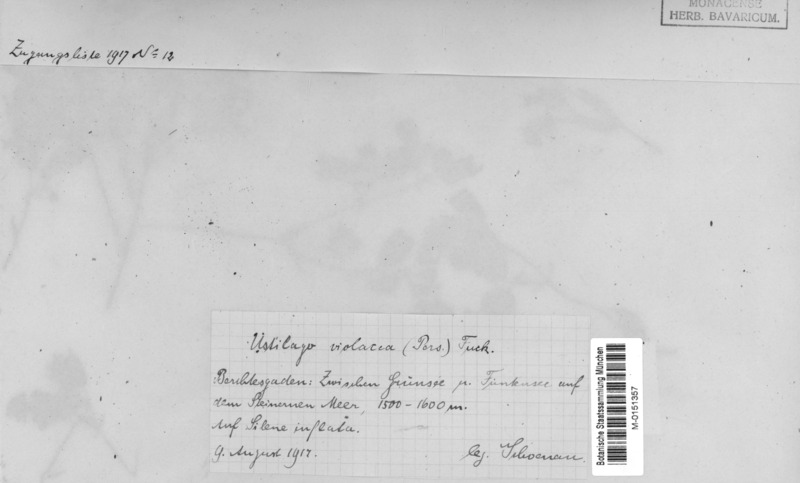 MONACENSE
HERB. BAVARICUM.
Zugangsliste 1917 No 12
Ustilago violacea (Pers.) Fuck.
Berchtesgaden: Zwischen Grünsee u. Funtensee auf
dem Steinernen Meer, 1500-1600 m.
Auf Silene inflata.
9. August 1917. leg. Schoenau.
Botanische Staatssammlung München
M-0151357